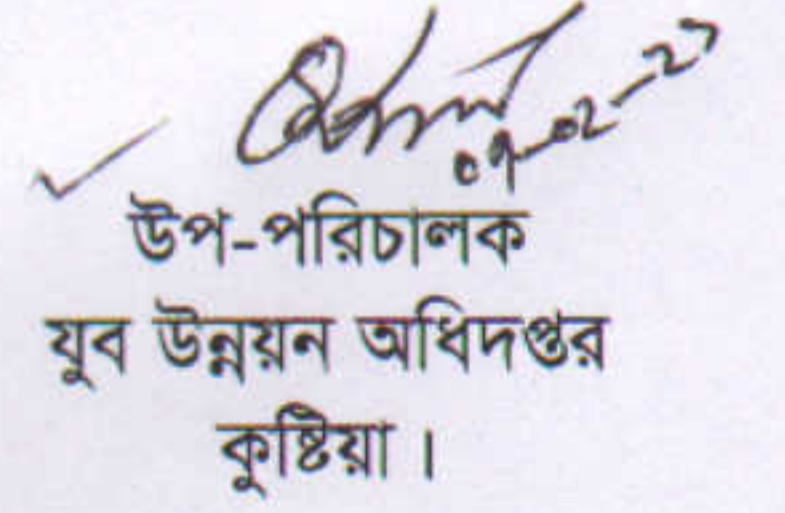 উপ-পরিচালক
যুব উন্নয়ন অধিদপ্তর
কুষ্টিয়া ।